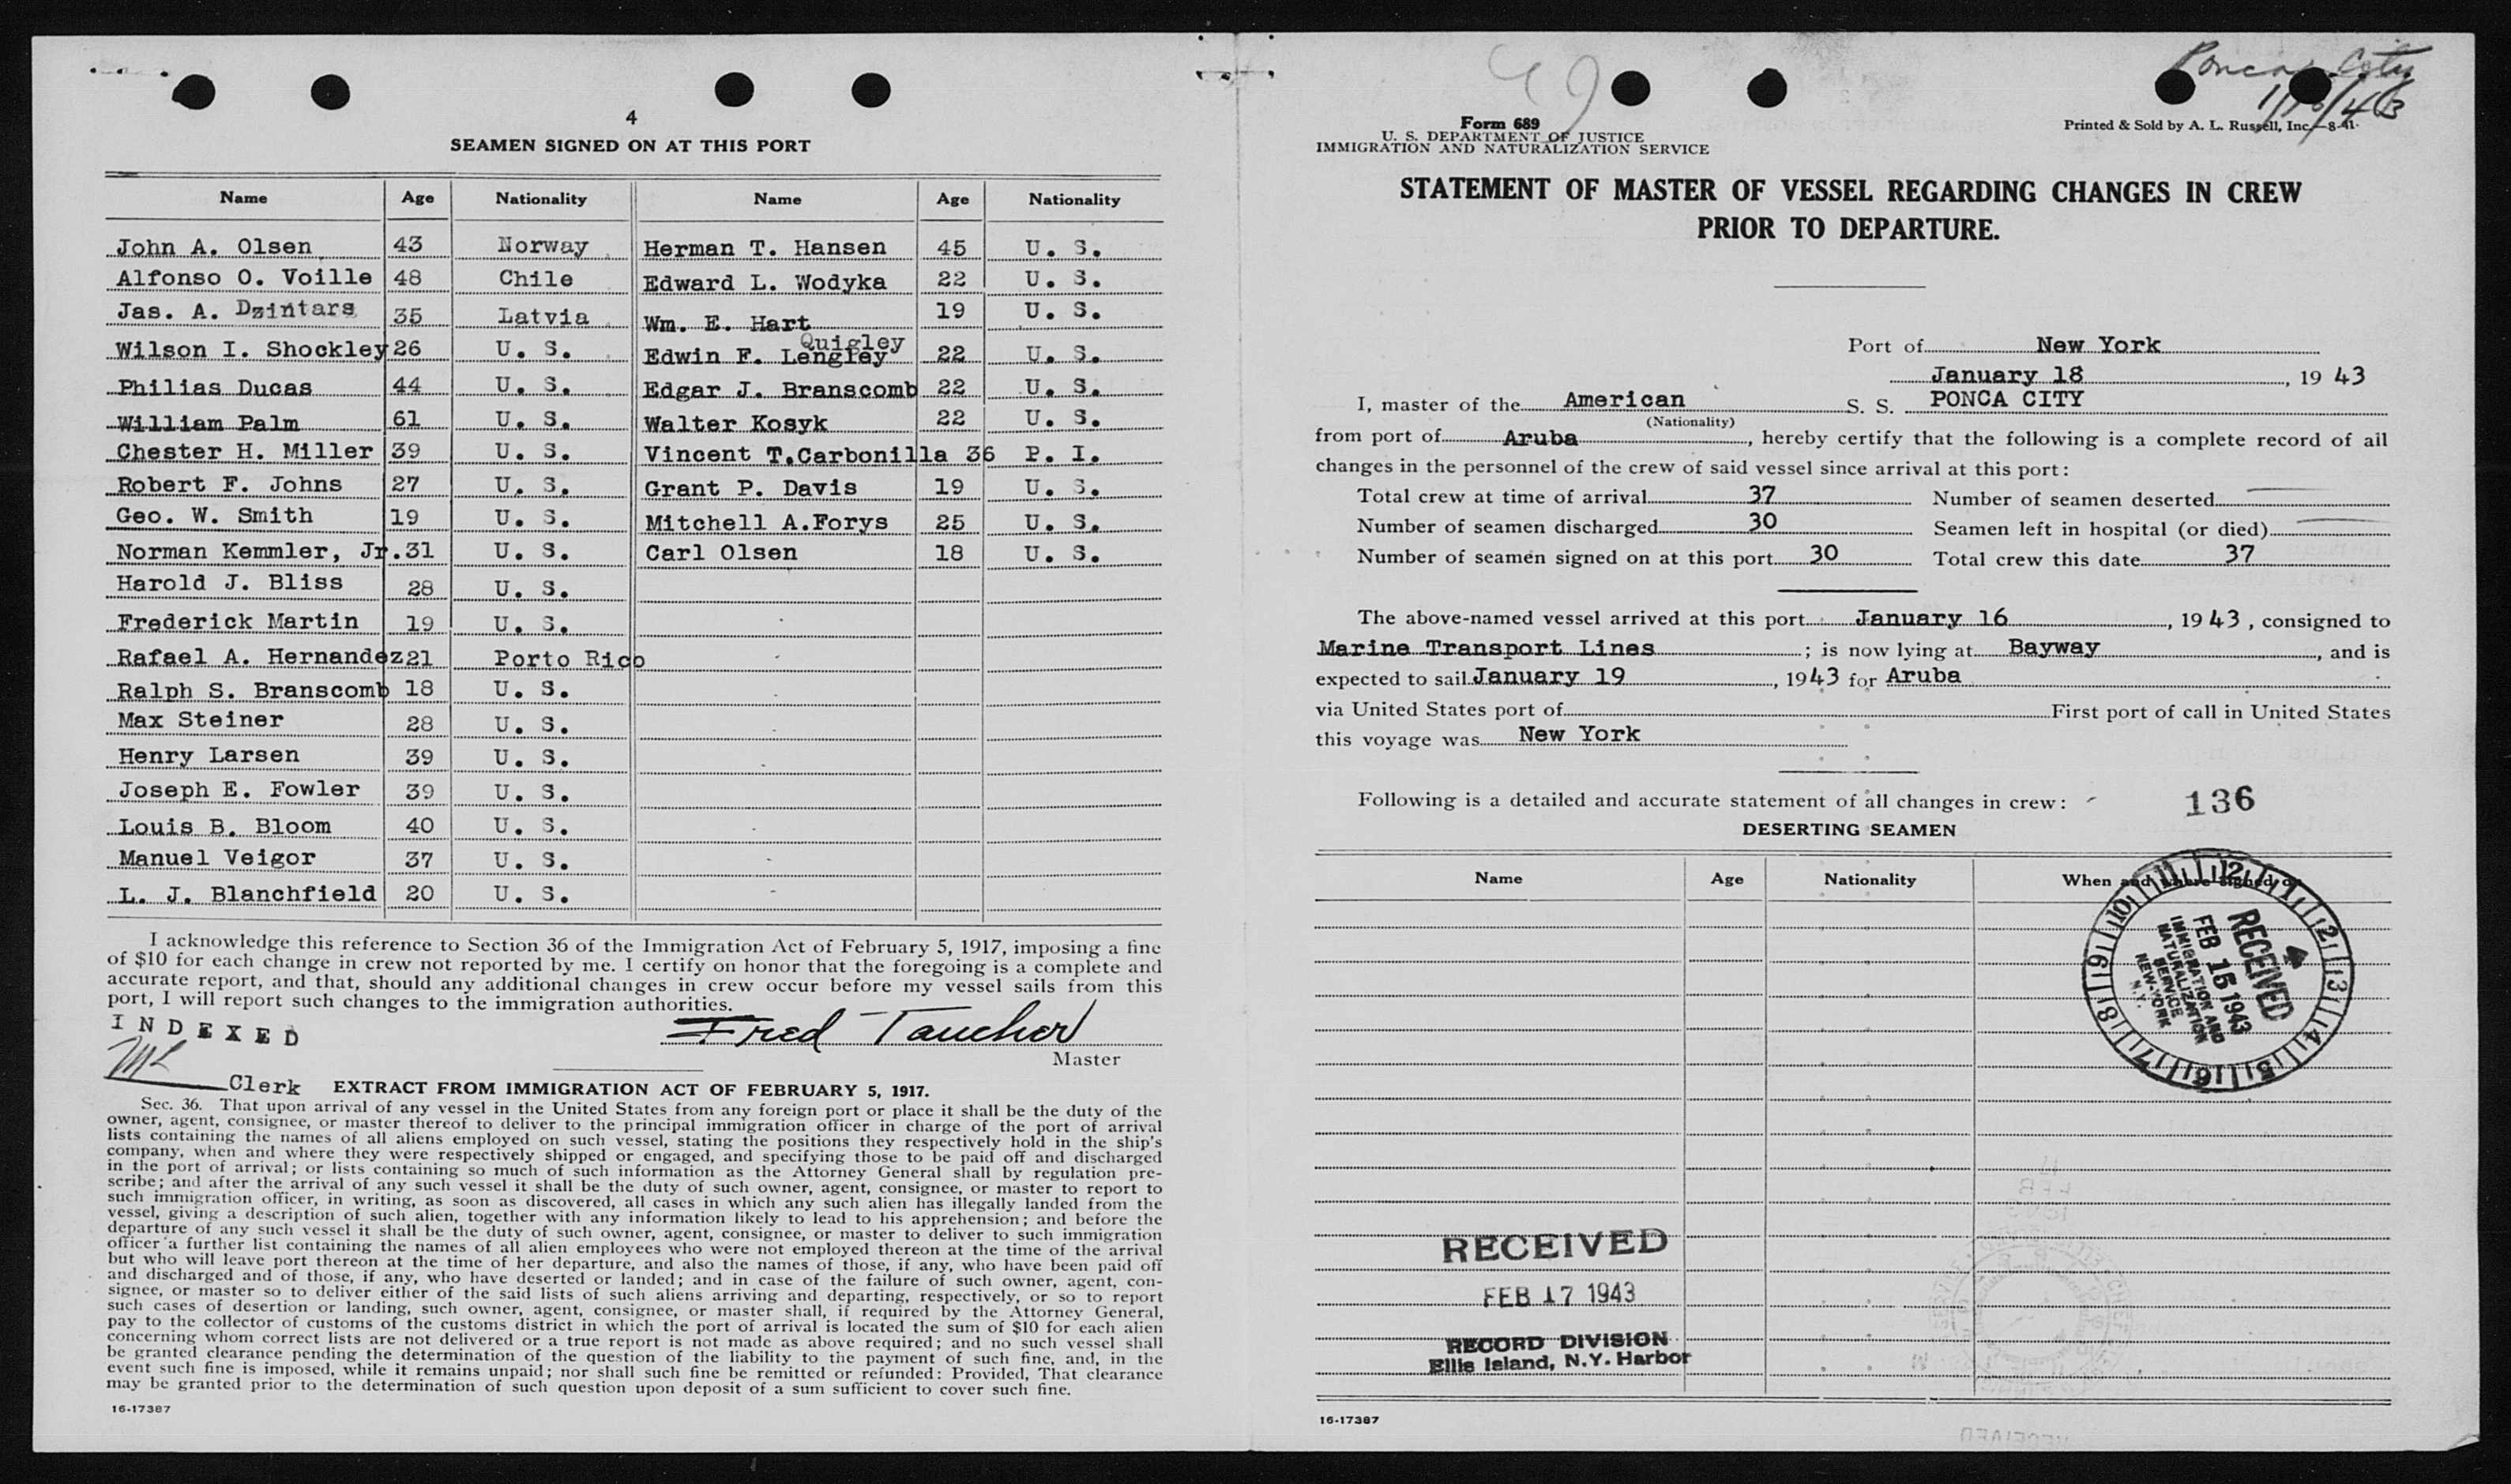 4
SEAMEN SIGNED ON AT THIS PORT
Name Age Nationality Name Age Nationality
John A. Olsen 43 Norway Herman T. Hansen 45 U. S.
Alfonso O. Voille 48 Chile Edward L. Wodyka 22 U. S.
Jas. A. Dzintars 35 Latvia Wm. E. Hart 19 U. S.
Quigley
Wilson I. Shockley 26 U. S. Edwin F. Lengley 22 U. S.
Philias Ducas 44 U. S. Edgar J. Branscomb 22 U. S.
William Palm 61 U. S. Walter Kosyk 22 U. S.
Chester H. Miller 39 U. S. Vincent T.Carbonilla 36 P. I.
Robert F. Johns 27 U. S. Grant P. Davis 19 U. S.
Geo. W. Smith 19 U. S. Mitchell A.Forys 25 U. S.
Norman Kemmler, Jr. 31 U. S. Carl Olsen 18 U. S.
Harold J. Bliss 28 U. S.
Frederick Martin 19 U. S.
Rafael A. Hernandez 21 Porto Rico
Ralph S. Branscomb 18 U. S.
Max Steiner 28 U. S.
Henry Larsen 39 U. S.
Joseph E. Fowler 39 U. S.
Louis B. Bloom 40 U. S.
Manuel Veigor 37 U. S.
L. J. Blanchfield 20 U. S.
I acknowledge this reference to Section 36 of the Immigration Act of February 5, 1917, imposing a fine
of $10 for each change in crew not reported by me. I certify on honor that the foregoing is a complete and
accurate report, and that, should any additional changes in crew occur before my vessel sails from this
port, I will report such changes to the immigration authorities.
INDEXED
Fred Taucher
Master
Clerk EXTRACT FROM IMMIGRATION ACT OF FEBRUARY 5, 1917.
Sec. 36. That upon arrival of any vessel in the United States from any foreign port or place it shall be the duty of the
owner, agent, consignee, or master thereof to deliver to the principal immigration officer in charge of the port of arrival
lists containing the names of all aliens employed on such vessel, stating the positions they respectively hold in the ship's
company, when and where they were respectively shipped or engaged, and specifying those to be paid off and discharged
in the port of arrival; or lists containing so much of such information as the Attorney General shall by regulation pre-
scribe; and after the arrival of any such vessel it shall be the duty of such owner, agent, consignee, or master to report to
such immigration officer, in writing, as soon as discovered, all cases in which any such alien has illegally landed from the
vessel, giving a description of such alien, together with any information likely to lead to his apprehension; and before the
departure of any such vessel it shall be the duty of such owner, agent, consignee, or master to deliver to such immigration
officer a further list containing the names of all alien employees who were not employed thereon at the time of the arrival
but who will leave port thereon at the time of her departure, and also the names of those, if any, who have been paid off
and discharged and of those, if any, who have deserted or landed; and in case of the failure of such owner, agent, con-
signee, or master so to deliver either of the said lists of such aliens arriving and departing, respectively, or so to report
such cases of desertion or landing, such owner, agent, consignee, or master shall, if required by the Attorney General,
pay to the collector of customs of the customs district in which the port of arrival is located the sum of $10 for each alien
concerning whom correct lists are not delivered or a true report is not made as above required; and no such vessel shall
be granted clearance pending the determination of the question of the liability to the payment of such fine, and, in the
event such fine is imposed, while it remains unpaid; nor shall such fine be remitted or refunded: Provided, That clearance
may be granted prior to the determination of such question upon deposit of a sum sufficient to cover such fine.
16-17387
Ponca City
Form 689
U. S. DEPARTMENT OF JUSTICE
IMMIGRATION AND NATURALIZATION SERVICE
Printed & Sold by A. L. Russell, Inc.—8-41
STATEMENT OF MASTER OF VESSEL REGARDING CHANGES IN CREW
PRIOR TO DEPARTURE.
Port of New York
January 18, 19 43
I, master of the American S. S. PONCA CITY
(Nationality)
from port of Aruba, hereby certify that the following is a complete record of all
changes in the personnel of the crew of said vessel since arrival at this port:
Total crew at time of arrival 37 Number of seamen deserted
Number of seamen discharged 30 Seamen left in hospital (or died)
Number of seamen signed on at this port 30 Total crew this date 37
The above-named vessel arrived at this port January 16, 1943, consigned to
Marine Transport Lines; is now lying at Bayway, and is
expected to sail January 19, 1943 for Aruba
via United States port of First port of call in United States
this voyage was New York
Following is a detailed and accurate statement of all changes in crew:
136
DESERTING SEAMEN
Name Age Nationality When and where signed on
12 1 2 3 4 5 6 7 8 9 10 11
RECEIVED
FEB 15 1943
IMMIGRATION AND
NATURALIZATION
SERVICE
NEW-YORK
N.Y.
RECEIVED
FEB 17 1943
RECORD DIVISION
Ellis Island, N.Y. Harbor
16-17387